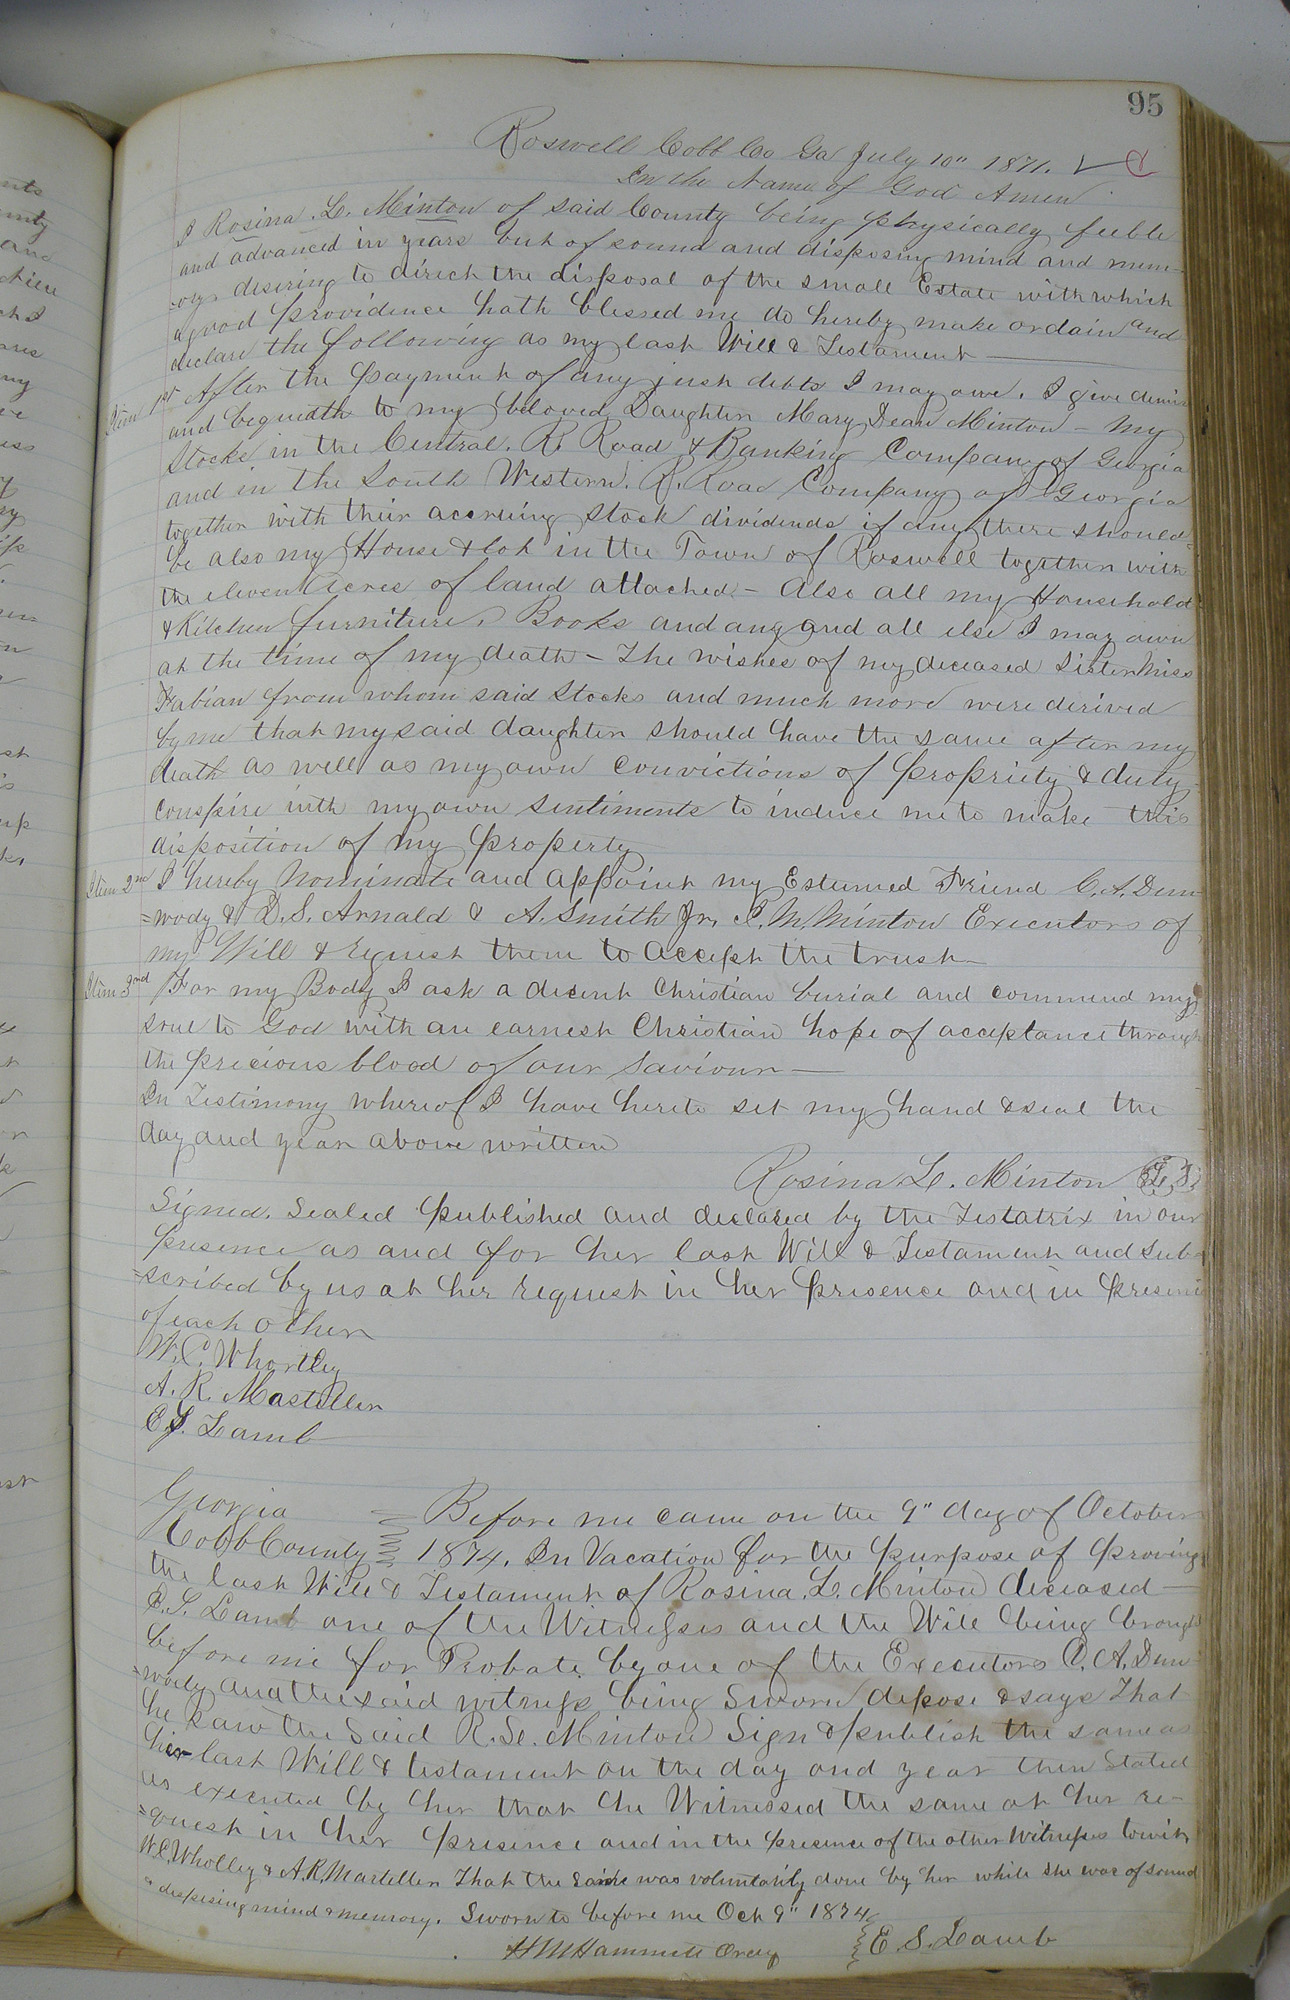 95
Roswell Cobb Co Ga July 10" 1871.
In the Name of God Amen
I Rosina L. Minton of said County being physically feeble
and advanced in years but of sound and disposing mind and mem-
-ory desiring to direct the disposal of the small Estate with which
a good providence hath blessed me do hereby make ordain and
declare the following as my last Will & Testament
Item 1st After the payment of any just debts I may owe. I give devise
and bequeath to my beloved Daughter Mary Dean Minton - My
Stocks in the Central R. Road & Banking Company of Georgia
and in the South Western R. Road Company of Georgia
together with their accruing Stock dividends if any there should
be also my House & lot in the Town of Roswell together with
the eleven Acres of land attached - Also all my Household
& Kitchen furniture, Books and any and all else I may own
at the time of my death - The wishes of my deceased Sister Miss
Fabian from whom said Stocks and much more were derived
by me that my said daughter should have the same after my
death as well as my own convictions of propriety & duty
conspire with my own sentiments to induce me to make this
disposition of my property
Item 2nd I hereby Nominate and appoint my Esteemed Friend C. A. Dun-
=wody & D. S. Arnald & A. Smith Jr, J. M. Minton Executors of
my Will & request them to accept the trust
Item 3rd For my Body I ask a decent Christian burial and commend my
soul to God with an earnest Christian hope of acceptance through
the precious blood of our Saviour
In Testimony whereof I have hereto set my hand & seal the
day and year above written
Rosina L. Minton L. S.
Signed, Sealed published and declared by the Testatrix in our
presence as and for her last Will & Testament and sub-
=scribed by us at her request in her presence and in presence
of each other
A. R. Mastellen
E. S. Lamb
Georgia
Cobb County
Before me came on the 9" day of October
1874. In Vacation for the purpose of proving
the last Will & Testament of Rosina L. Minton deceased
E. S. Lamb one of the Witnesses and the Will being brought
before me for Probate by one of the Executors C. A. Dun-
=wody and the said witness being Sworn depose & says that
he saw the Said R. L. Minton Sign & publish the same as
her last Will & testament on the day and year then Stated
as executed by her that he Witnessed the same at her re-
=quest in her presence and in the presence of the other Witnesses towit
W. C. Wholley & A. R. Mastellen That the same was voluntarily done by her while she was of sound
& disposing mind & memory. Sworn to before me Oct 9" 1874
H M Hammett Ordy
E. S. Lamb